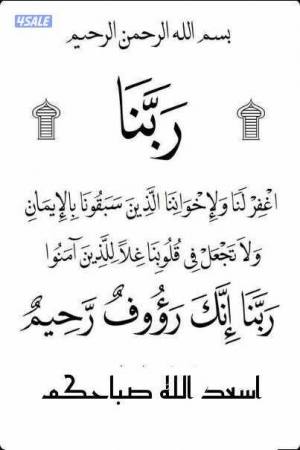 4SALE
بسم الله الرحمن الرحيم
رَبَّنَا
اغْفِرْ لَنَا وَلِإِخْوَانِنَا الَّذِينَ سَبَقُونَا بِالْإِيمَانِ
وَلَا تَجْعَلْ فِي قُلُوبِنَا غِلًّا لِلَّذِينَ آمَنُوا
رَبَّنَا إِنَّكَ رَؤُوفٌ رَّحِيمٌ
اسعد الله صباحكم